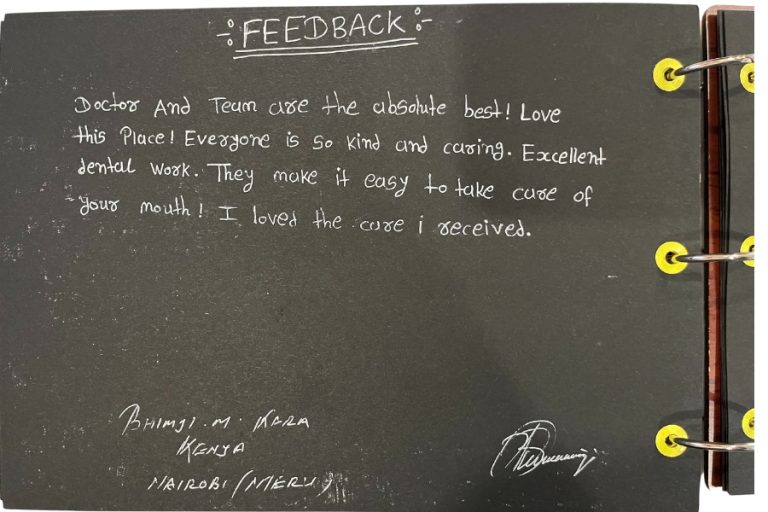 -: FEEDBACK :-
Doctor And Team are the absolute best! Love
this Place! Everyone is so kind and caring. Excellent
dental work. They make it easy to take care of
your mouth! I loved the care i received.
BHIMJI. M. KARA
KENYA
NAIROBI (MERU)